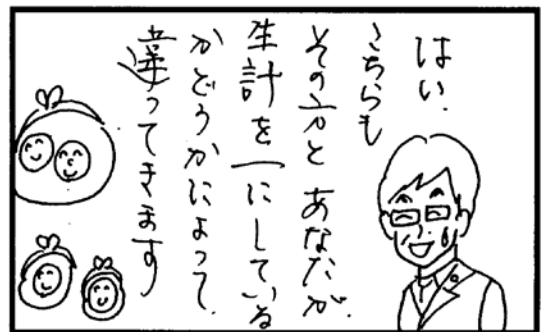 はい.
こちらも
その方と あなたが.
生計を一にしている
かどうかによって.
違ってきます